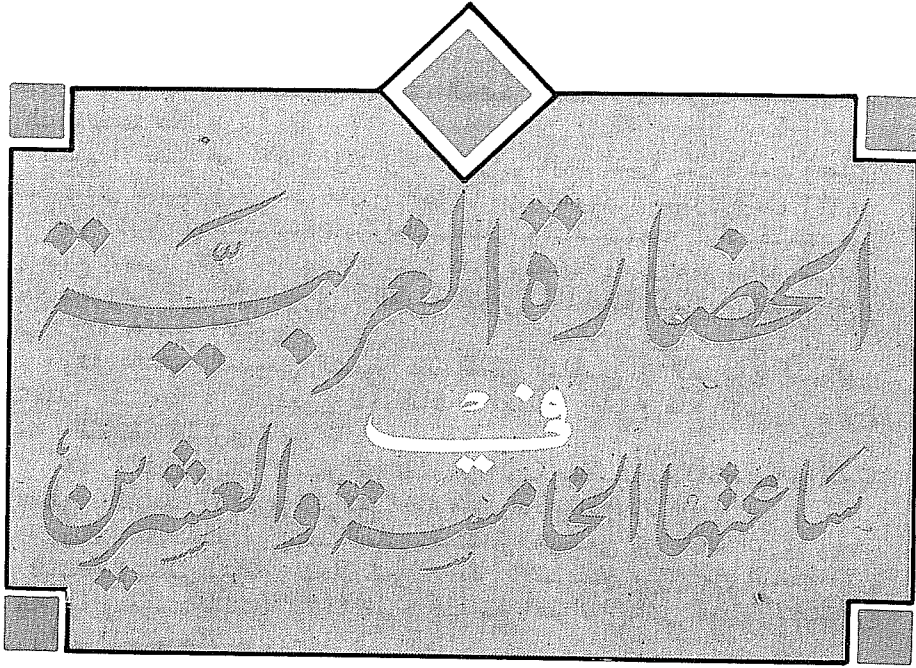 الحضارة الغربيّة
في
ساعتها الخامسة والعشرين